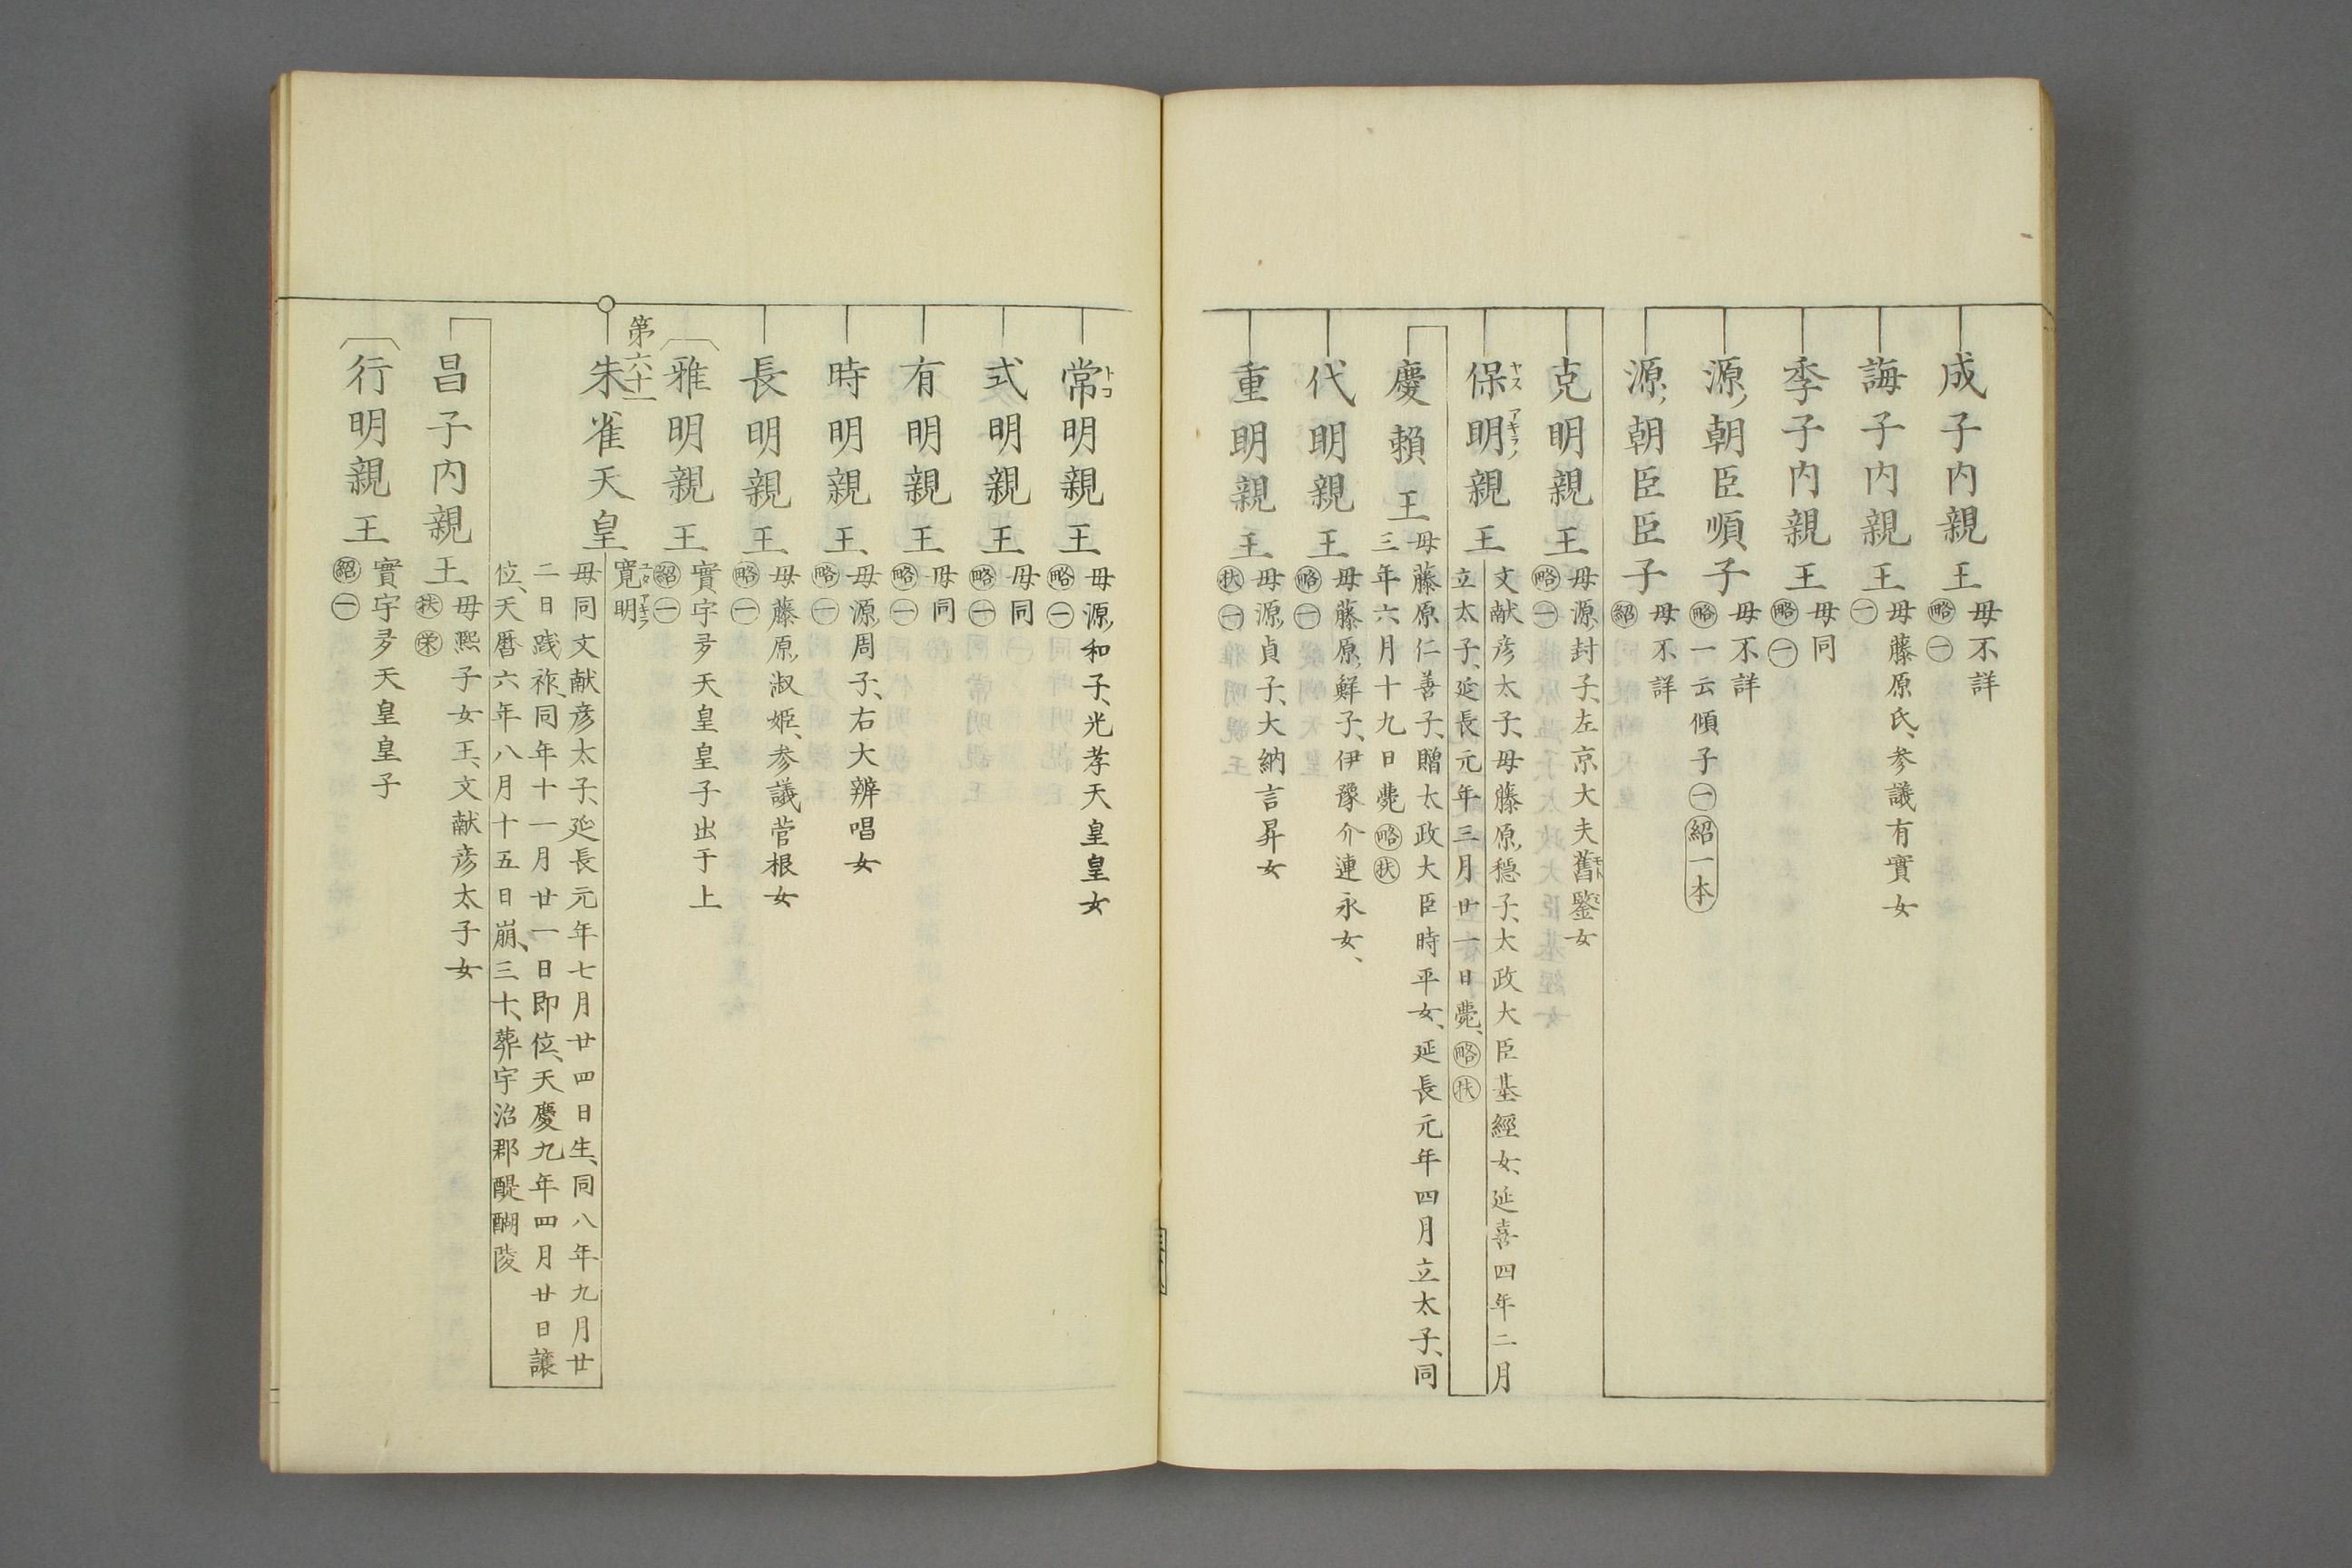 成子内親王 母不詳
略 一
誨子内親王 母藤原氏、参議有實女
一
季子内親王 母同
略 一
源朝臣順子 母不詳
略 一云傾子 一 紹一本
源朝臣臣子 母不詳
紹
克明親王 母源封子、左京大夫舊鑒女
略 一
保明親王 文献彦太子、母藤原穏子、大政大臣基經女、延喜四年二月
ヤス アキラノ
立太子、延長元年三月廿一日薨、略 扶
慶頼王 母藤原仁善子、贈太政大臣時平女、延長元年四月立太子、同
三年六月十九日薨 略 扶
代明親王 母藤原鮮子、伊豫介連永女、
略 一
重明親王 母源貞子、大納言昇女
扶 一
常明親王 母源和子、光孝天皇皇女
トコ
略 一
式明親王 母同
略 一
有明親王 母同
略 一
時明親王 母源周子、右大辨唱女
略 一
長明親王 母藤原淑姫、参議菅根女
略 一
雅明親王 實宇多天皇皇子出于上
紹 一
第六十一
朱雀天皇 寛明
ユタアキラ
母同文献彦太子、延長元年七月廿四日生、同八年九月廿
二日践祚、同年十一月廿一日即位、天慶九年四月廿日讓
位、天暦六年八月十五日崩、三十、葬宇治郡醍醐陵
昌子内親王 母熙子女王、文献彦太子女
扶 栄
行明親王 實宇多天皇皇子
紹 一